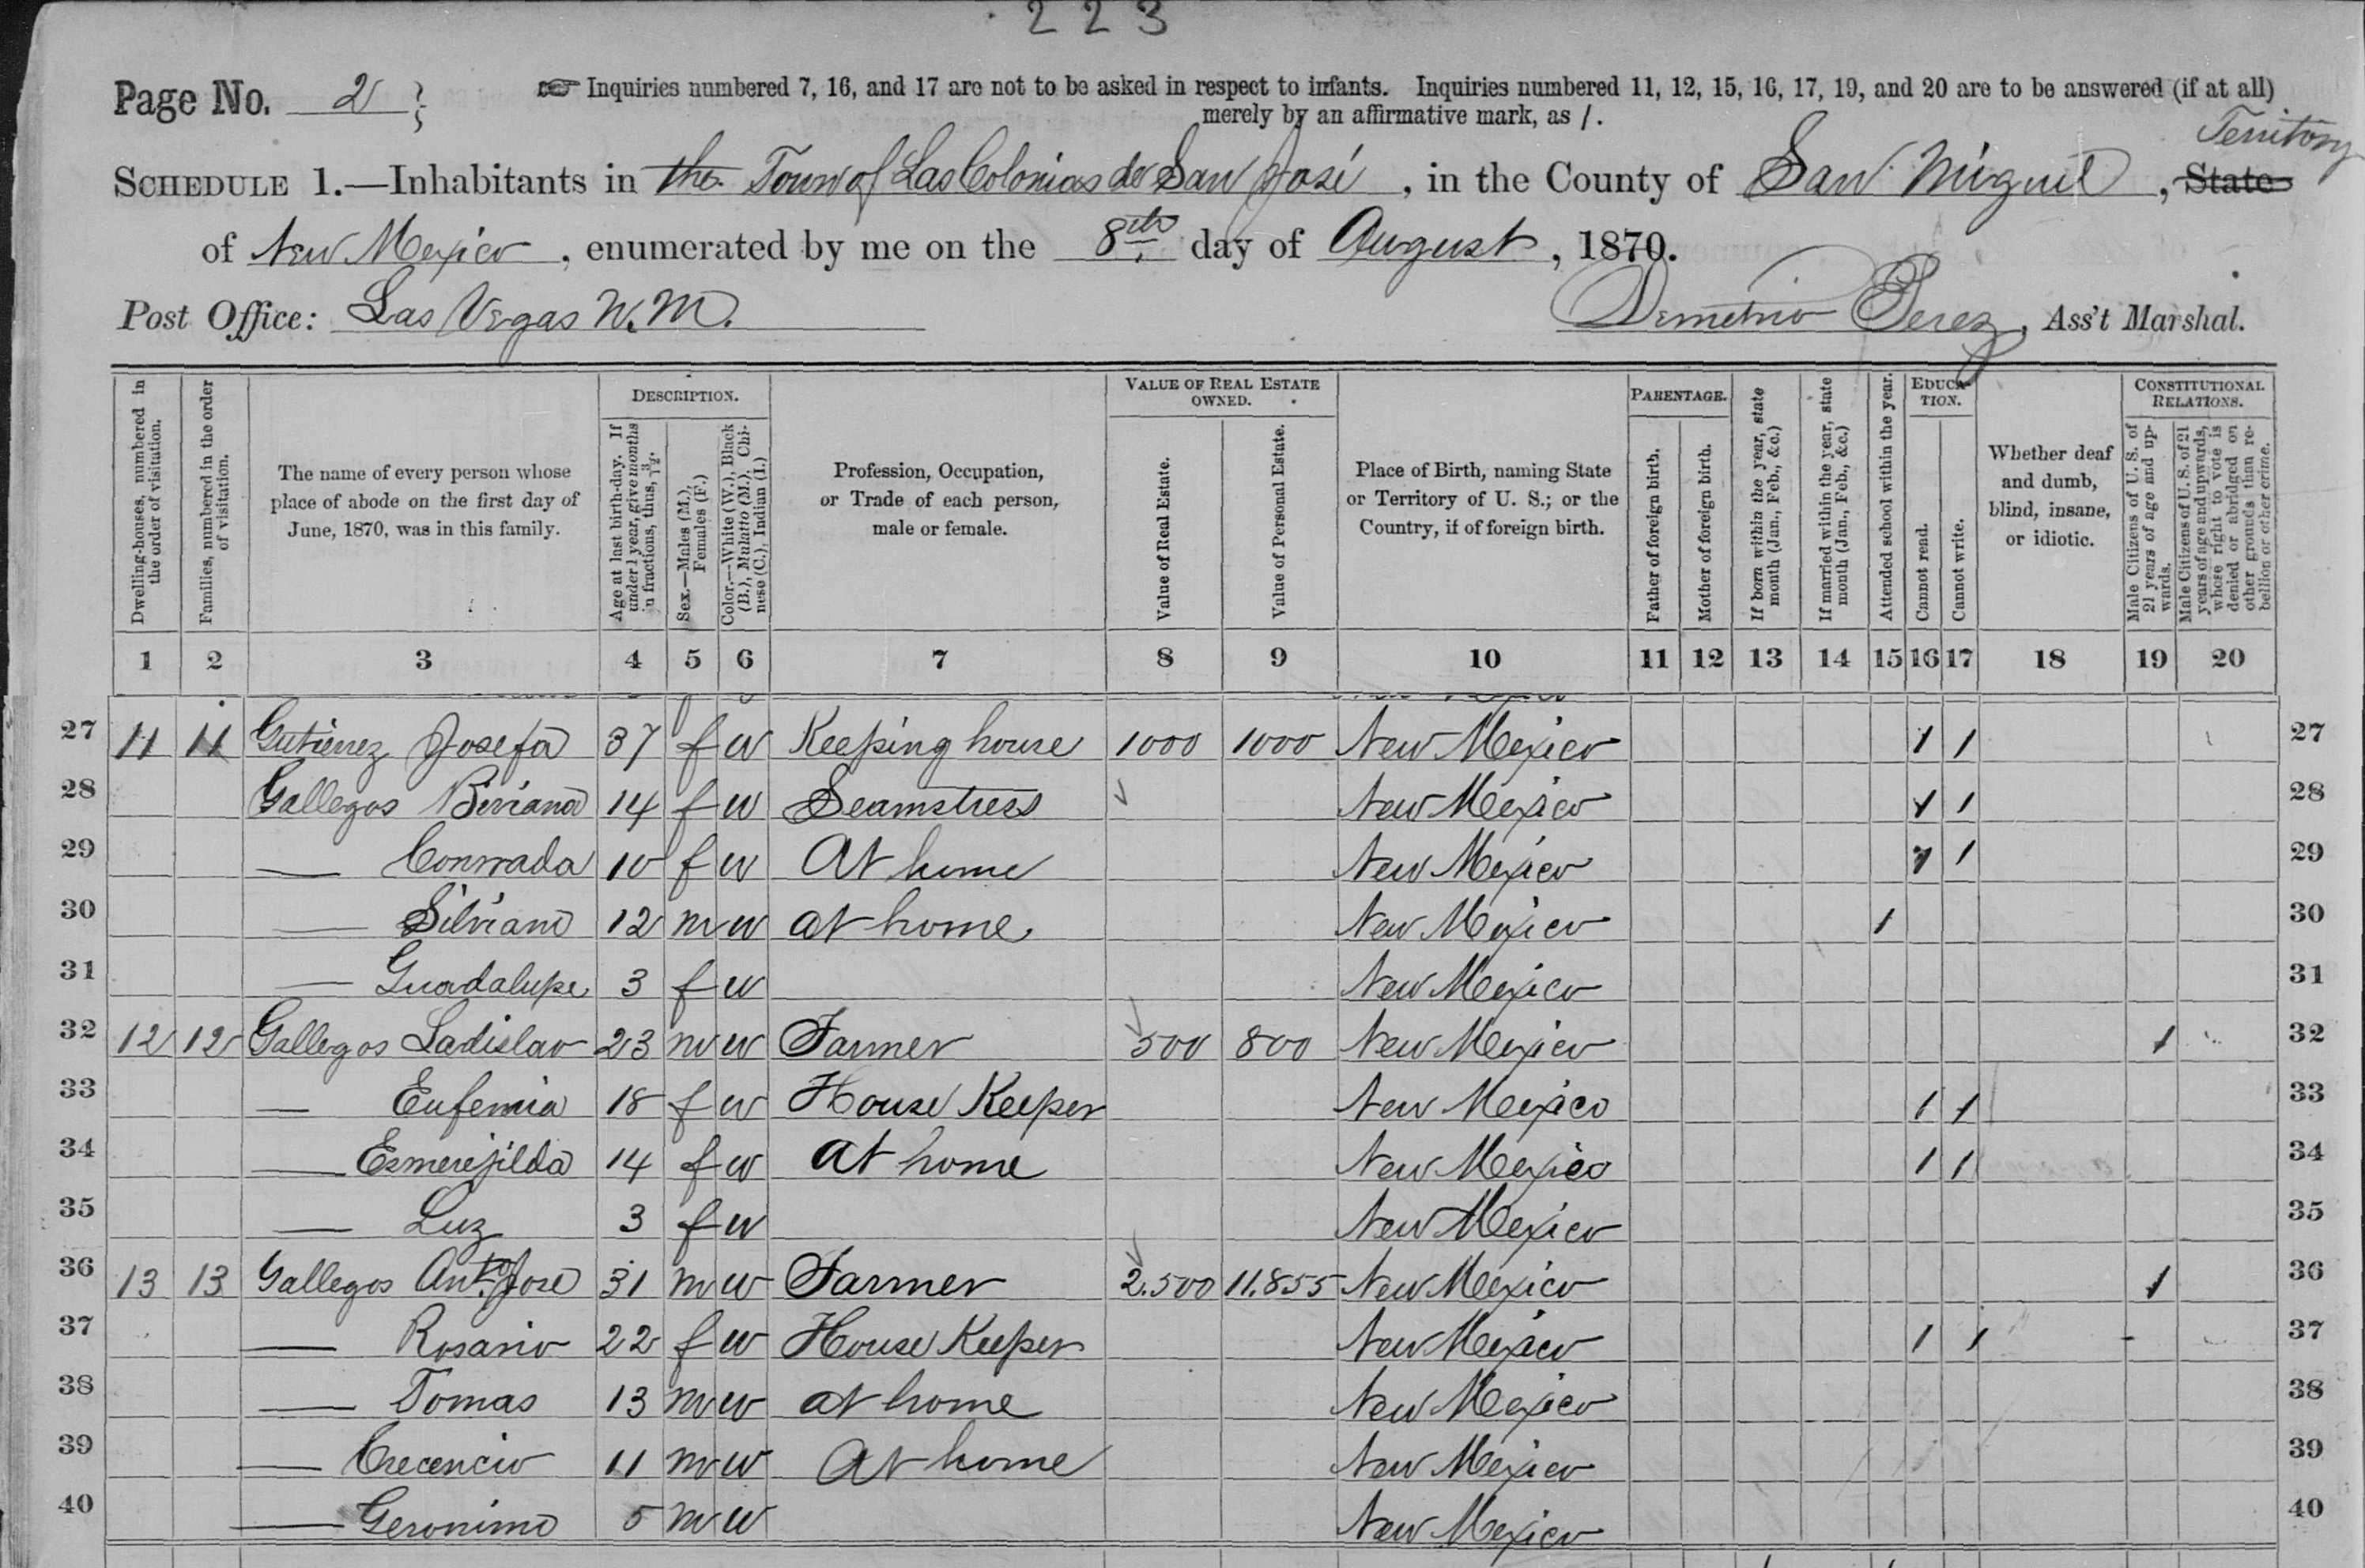 223
Page No. 2 ☞ Inquiries numbered 7, 16, and 17 are not to be asked in respect to infants. Inquiries numbered 11, 12, 15, 16, 17, 19, and 20 are to be answered (if at all)
merely by an affirmative mark, as /.
Territory
SCHEDULE 1.—Inhabitants in the Town of Las Colonias de San José, in the County of San Miguel, State
of New Mexico, enumerated by me on the 8th day of August, 1870.
Post Office: Las Vegas N. M. Demetrio Perez, Ass't Marshal.
Dwelling-houses, numbered in the order of visitation.
Families, numbered in the order of visitation.
The name of every person whose place of abode on the first day of June, 1870, was in this family.
DESCRIPTION.
Age at last birth-day. If under 1 year, give months in fractions, thus, 3/12.
Sex.—Males (M.), Females (F.)
Color.—White (W.), Black (B.), Mulatto (M.), Chinese (C.), Indian (I.)
Profession, Occupation, or Trade of each person, male or female.
VALUE OF REAL ESTATE OWNED.
Value of Real Estate.
Value of Personal Estate.
Place of Birth, naming State or Territory of U. S.; or the Country, if of foreign birth.
PARENTAGE.
Father of foreign birth.
Mother of foreign birth.
If born within the year, state month (Jan., Feb., &c.)
If married within the year, state month (Jan., Feb., &c.)
Attended school within the year.
EDUCATION.
Cannot read.
Cannot write.
Whether deaf and dumb, blind, insane, or idiotic.
CONSTITUTIONAL RELATIONS.
Male Citizens of U. S. of 21 years of age and upwards.
Male Citizens of U. S. of 21 years of age and upwards, whose right to vote is denied or abridged on other grounds than rebellion or other crime.
1 2 3 4 5 6 7 8 9 10 11 12 13 14 15 16 17 18 19 20
27 11 11 Gutierrez Josefa 37 f w Keeping house 1000 1000 New Mexico / / 27
28 Gallegos Biviana 14 f w Seamstress New Mexico / / 28
29 — Conrrada 10 f w At home New Mexico / / 29
30 — Silviano 12 m w at home New Mexico / 30
31 — Guadalupe 3 f w New Mexico 31
32 12 12 Gallegos Ladislao 23 m w Farmer 500 800 New Mexico / 32
33 — Eufemia 18 f w House Keeper New Mexico / / 33
34 — Esmerejilda 14 f w At home New Mexico / / 34
35 — Luz 3 f w New Mexico 35
36 13 13 Gallegos Anto. Jose 31 m w Farmer 2.500 11.855 New Mexico / 36
37 — Rosario 22 f w House Keeper New Mexico / / 37
38 — Tomas 13 m w at home New Mexico 38
39 — Crecencio 11 m w At home New Mexico 39
40 — Geronimo 5 m w New Mexico 40